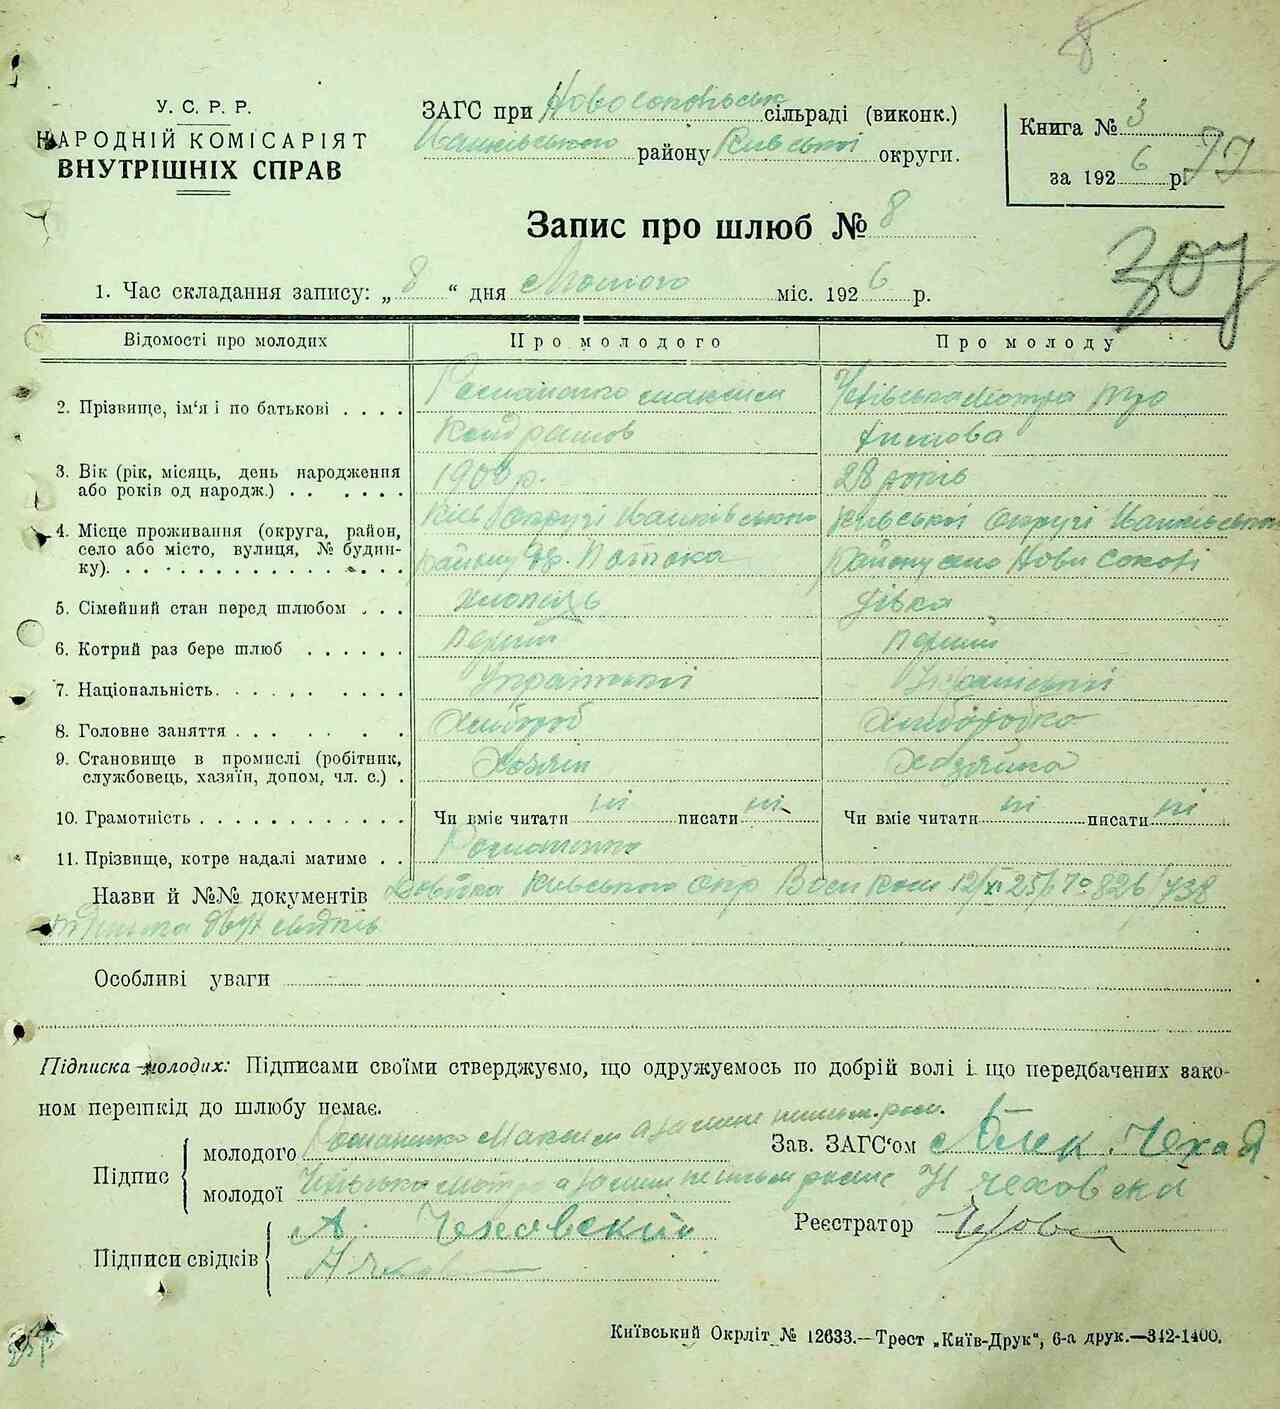 8
У. С. Р. Р.
НАРОДНІЙ КОМІСАРІЯТ
ВНУТРІШНІХ СПРАВ
ЗАГС при Новосокільськ сільраді (виконк.)
Іванківського району Київської округи.
Книга № 3
за 1926 р.
77
Запис про шлюб № 8
307
1. Час складання запису: „8“ дня Лютого міс. 1926 р.
Відомості про молодих Про молодого Про молоду
2. Прізвище, ім'я і по батькові . . . . Романенко Максим Мотра
Кондратов
3. Вік (рік, місяць, день народження 1900 р. 28 років
або років од народж.) . . . . . .
4. Місце проживання (округа, район, Київ Округі Іванківського Київської Округі Іванківського
село або місто, вулиця, № будин- Району Району село Нови Соколі
ку). . . . . . . . . . . . . . . .
5. Сімейний стан перед шлюбом . . . Хлопець дівка
6. Котрий раз бере шлюб . . . . . . перший перший
7. Національність. . . . . . . . . . Український Український
8. Головне заняття . . . . . . . . Хлибороб Хлиборобка
9. Становище в промислі (робітник, Хозяїн Хазяйка
службовець, хазяїн, допом, чл. с.) .
10. Грамотність . . . . . . . . . . . . Чи вміє читати ні писати ні Чи вміє читати ні писати ні
11. Прізвище, котре надалі матиме . . Романенко
Назви й №№ документів Довідка Київського Окр Воен Ком 12/XI 25 826/738
двух свідків
Особливі уваги
Підписка молодих: Підписами своїми стверджуємо, що одружуємось по добрій волі і що передбачених зако-
ном перешкід до шлюбу немає.
Підпис
молодого Романенко Максим а за
Зав. ЗАГС'ом
молодої Мотра а за
Н Чеховский
Підписи свідків
А. Чеховский
Реєстратор
Київський Окрліт № 12633.—Трест „Київ-Друк“, 6-а друк.—342-1400.